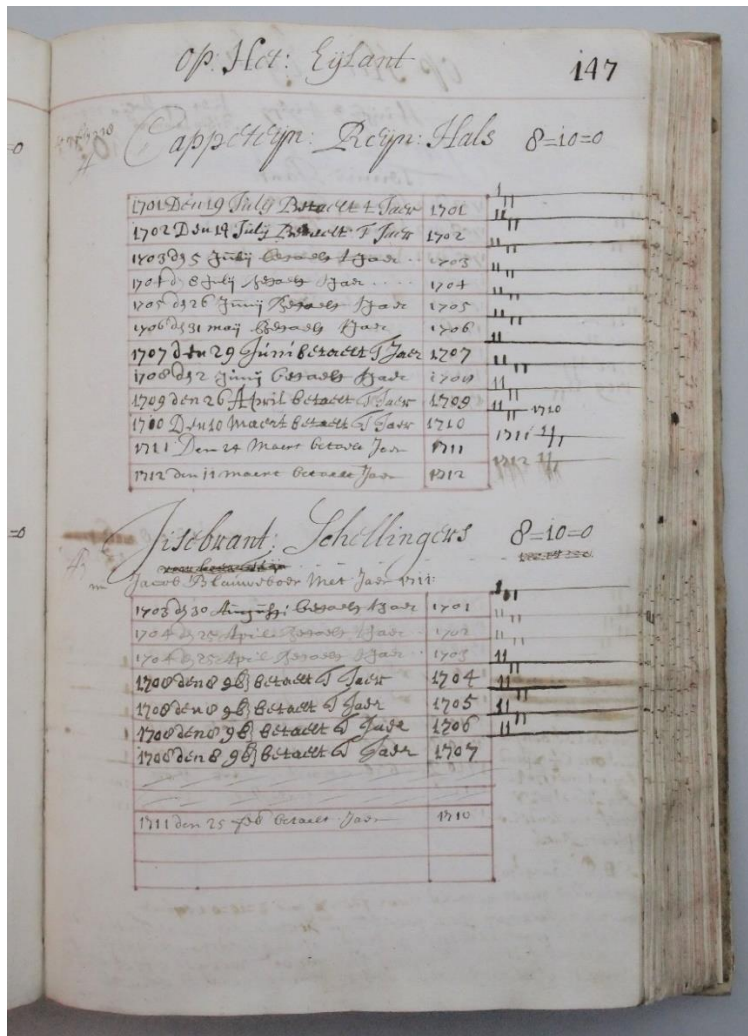 op: Het: Eijlant 147
Cappeteijn: Reijn: Hals 8=10=0
1701 Den 19 Julij Betaelt 1 Jaer 1701
1702 Den 19 Julij Betaelt 1 Jaer 1702
1703 d 5 Junij betaelt 1 Jaer 1703
1704 d 8 Julij betaelt 1 Jaer 1704
1705 d 26 Junij betaelt 1 Jaer 1705
1706 d 31 maij betaelt 1 Jaer 1706
1707 den 29 Juni betaelt 1 Jaer 1707
1708 d 2 Junij betaelt 1 Jaer 1708
1709 den 26 April betaelt 1 Jaer 1709
1710
1710 Den 10 Maert betaelt 1 Jaer 1710
1711
1711 Den 24 Maert betaelt Jaer 1711
1712
1712 den 11 maert betaelt Jaer 1712
Jisebrant: Schellingers 8=10=0
nu Jacob Blauweboer Met Jaer 1711
1703 d 30 Augusti betaelt 1 Jaer 1701
1704 d 25 April betaelt 1 Jaer 1702
1704 d 25 April betaelt 1 Jaer 1703
1708 den 8 9b betaelt 1 Jaer 1704
1708 den 8 9b betaelt 1 Jaer 1705
1708 den 8 9b betaelt 1 Jaer 1706
1708 den 8 9b betaelt 1 Jaer 1707
1711 den 25 feb betaelt Jaer 1710
=0
=0